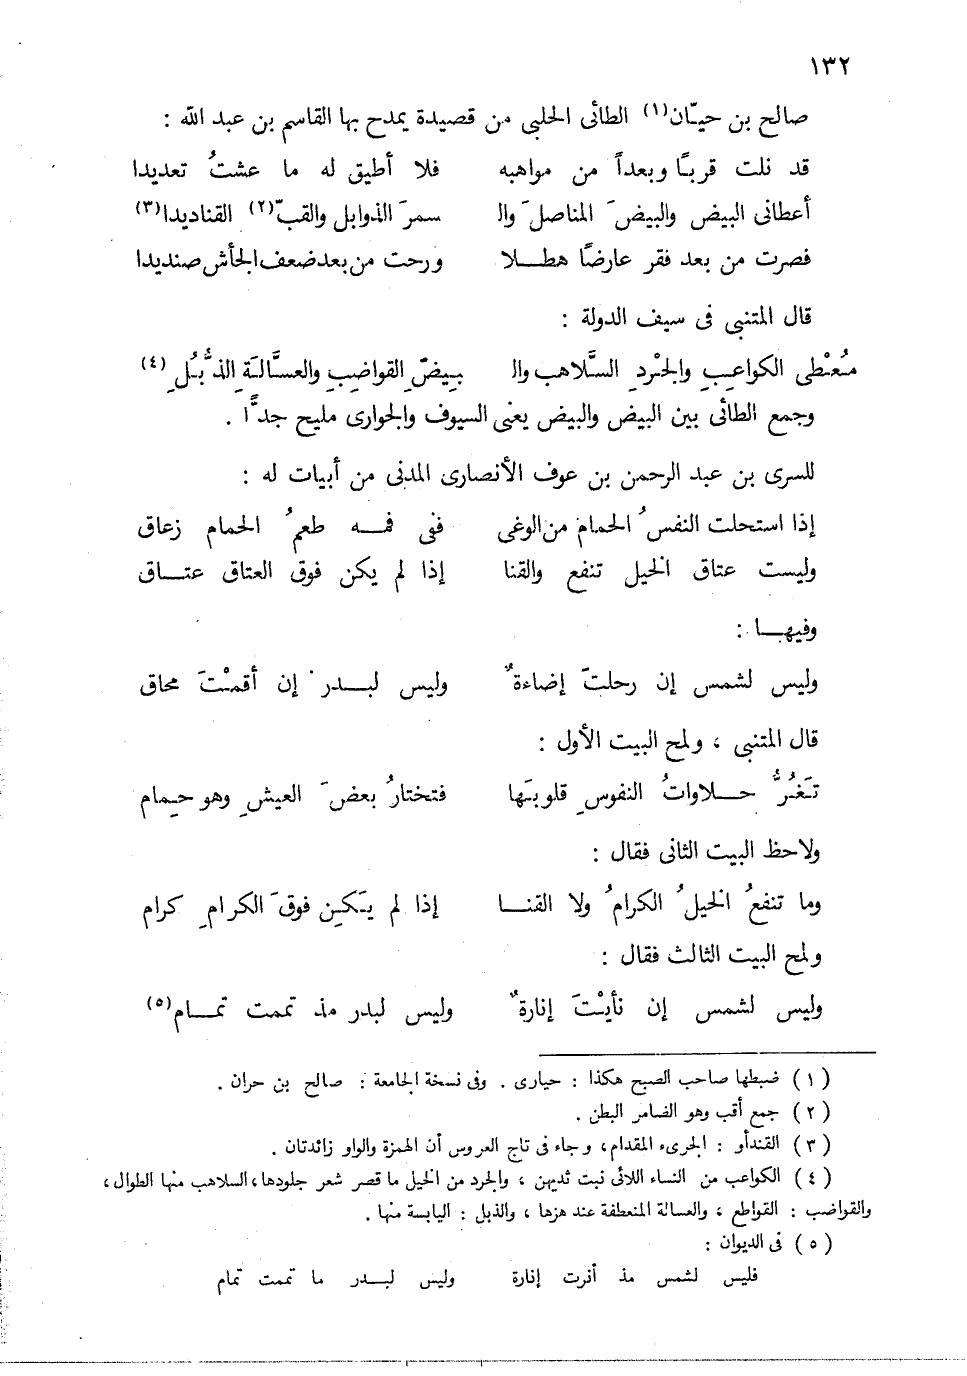 ١٣٢
صالح بن حيّان(١) الطائى الحلبى من قصيدة يمدح بها القاسم بن عبد الله :
قد نلت قربًا وبعداً من مواهبه فلا أطيق له ما عشتُ تعديدا
أعطانى البيض والبيضَ المناصلَ والـ سمرَ الذوابل والقبّ(٢) القناديدا(٣)
فصرت من بعد فقر عارضًا هطلا ورحت من بعد ضعف الجأش صنديدا
قال المتنبى فى سيف الدولة :
مُعْطى الكواعبِ والجُرْدِ السَّلاهب والـ بيضِ القواضبِ والعسَّالةِ الذُّبُلِ (٤)
وجمع الطائى بين البيض والبيض يعنى السيوف والجوارى مليح جدًّا .
للسرى بن عبد الرحمن بن عوف الأنصارى المدنى من أبيات له :
إذا استحلت النفسُ الحمام من الوغى ففى فمه طعمُ الحمام زعاق
وليست عتاق الخيل تنفع والقنا إذا لم يكن فوق العتاق عتاق
وفيها :
وليس لشمس إن رحلتَ إضاءةٌ وليس لبدر إن أقمْتَ محاق
قال المتنبى ، ولمح البيت الأول :
تَغُرُّ حلاواتُ النفوسِ قلوبَها فتختارُ بعضَ العيشِ وهو حِمام
ولاحظ البيت الثانى فقال :
وما تنفعُ الخيلُ الكرامُ ولا القنا إذا لم يَكِن فوقَ الكرامِ كرام
ولمح البيت الثالث فقال :
وليس لشمس إن نأيْتَ إنارةٌ وليس لبدر مذ تممت تمام(٥)
(١) ضبطها صاحب الصبح هكذا : حيارى . وفى نسخة الجامعة : صالح بن حران .
(٢) جمع أقب وهو الضامر البطن .
(٣) القندأو : الجرىء المقدام، وجاء فى تاج العروس أن الهمزة والواو زائدتان .
(٤) الكواعب من النساء اللائى نبت ثديهن ، والجرد من الخيل ما قصر شعر جلودها، السلاهب منها الطوال ،
والقواضب : القواطع ، والعسالة المنعطفة عند هزها ، والذبل : اليابسة منها .
(٥) فى الديوان :
فليس لشمس مذ أنرت إنارة وليس لبدر ما تممت تمام